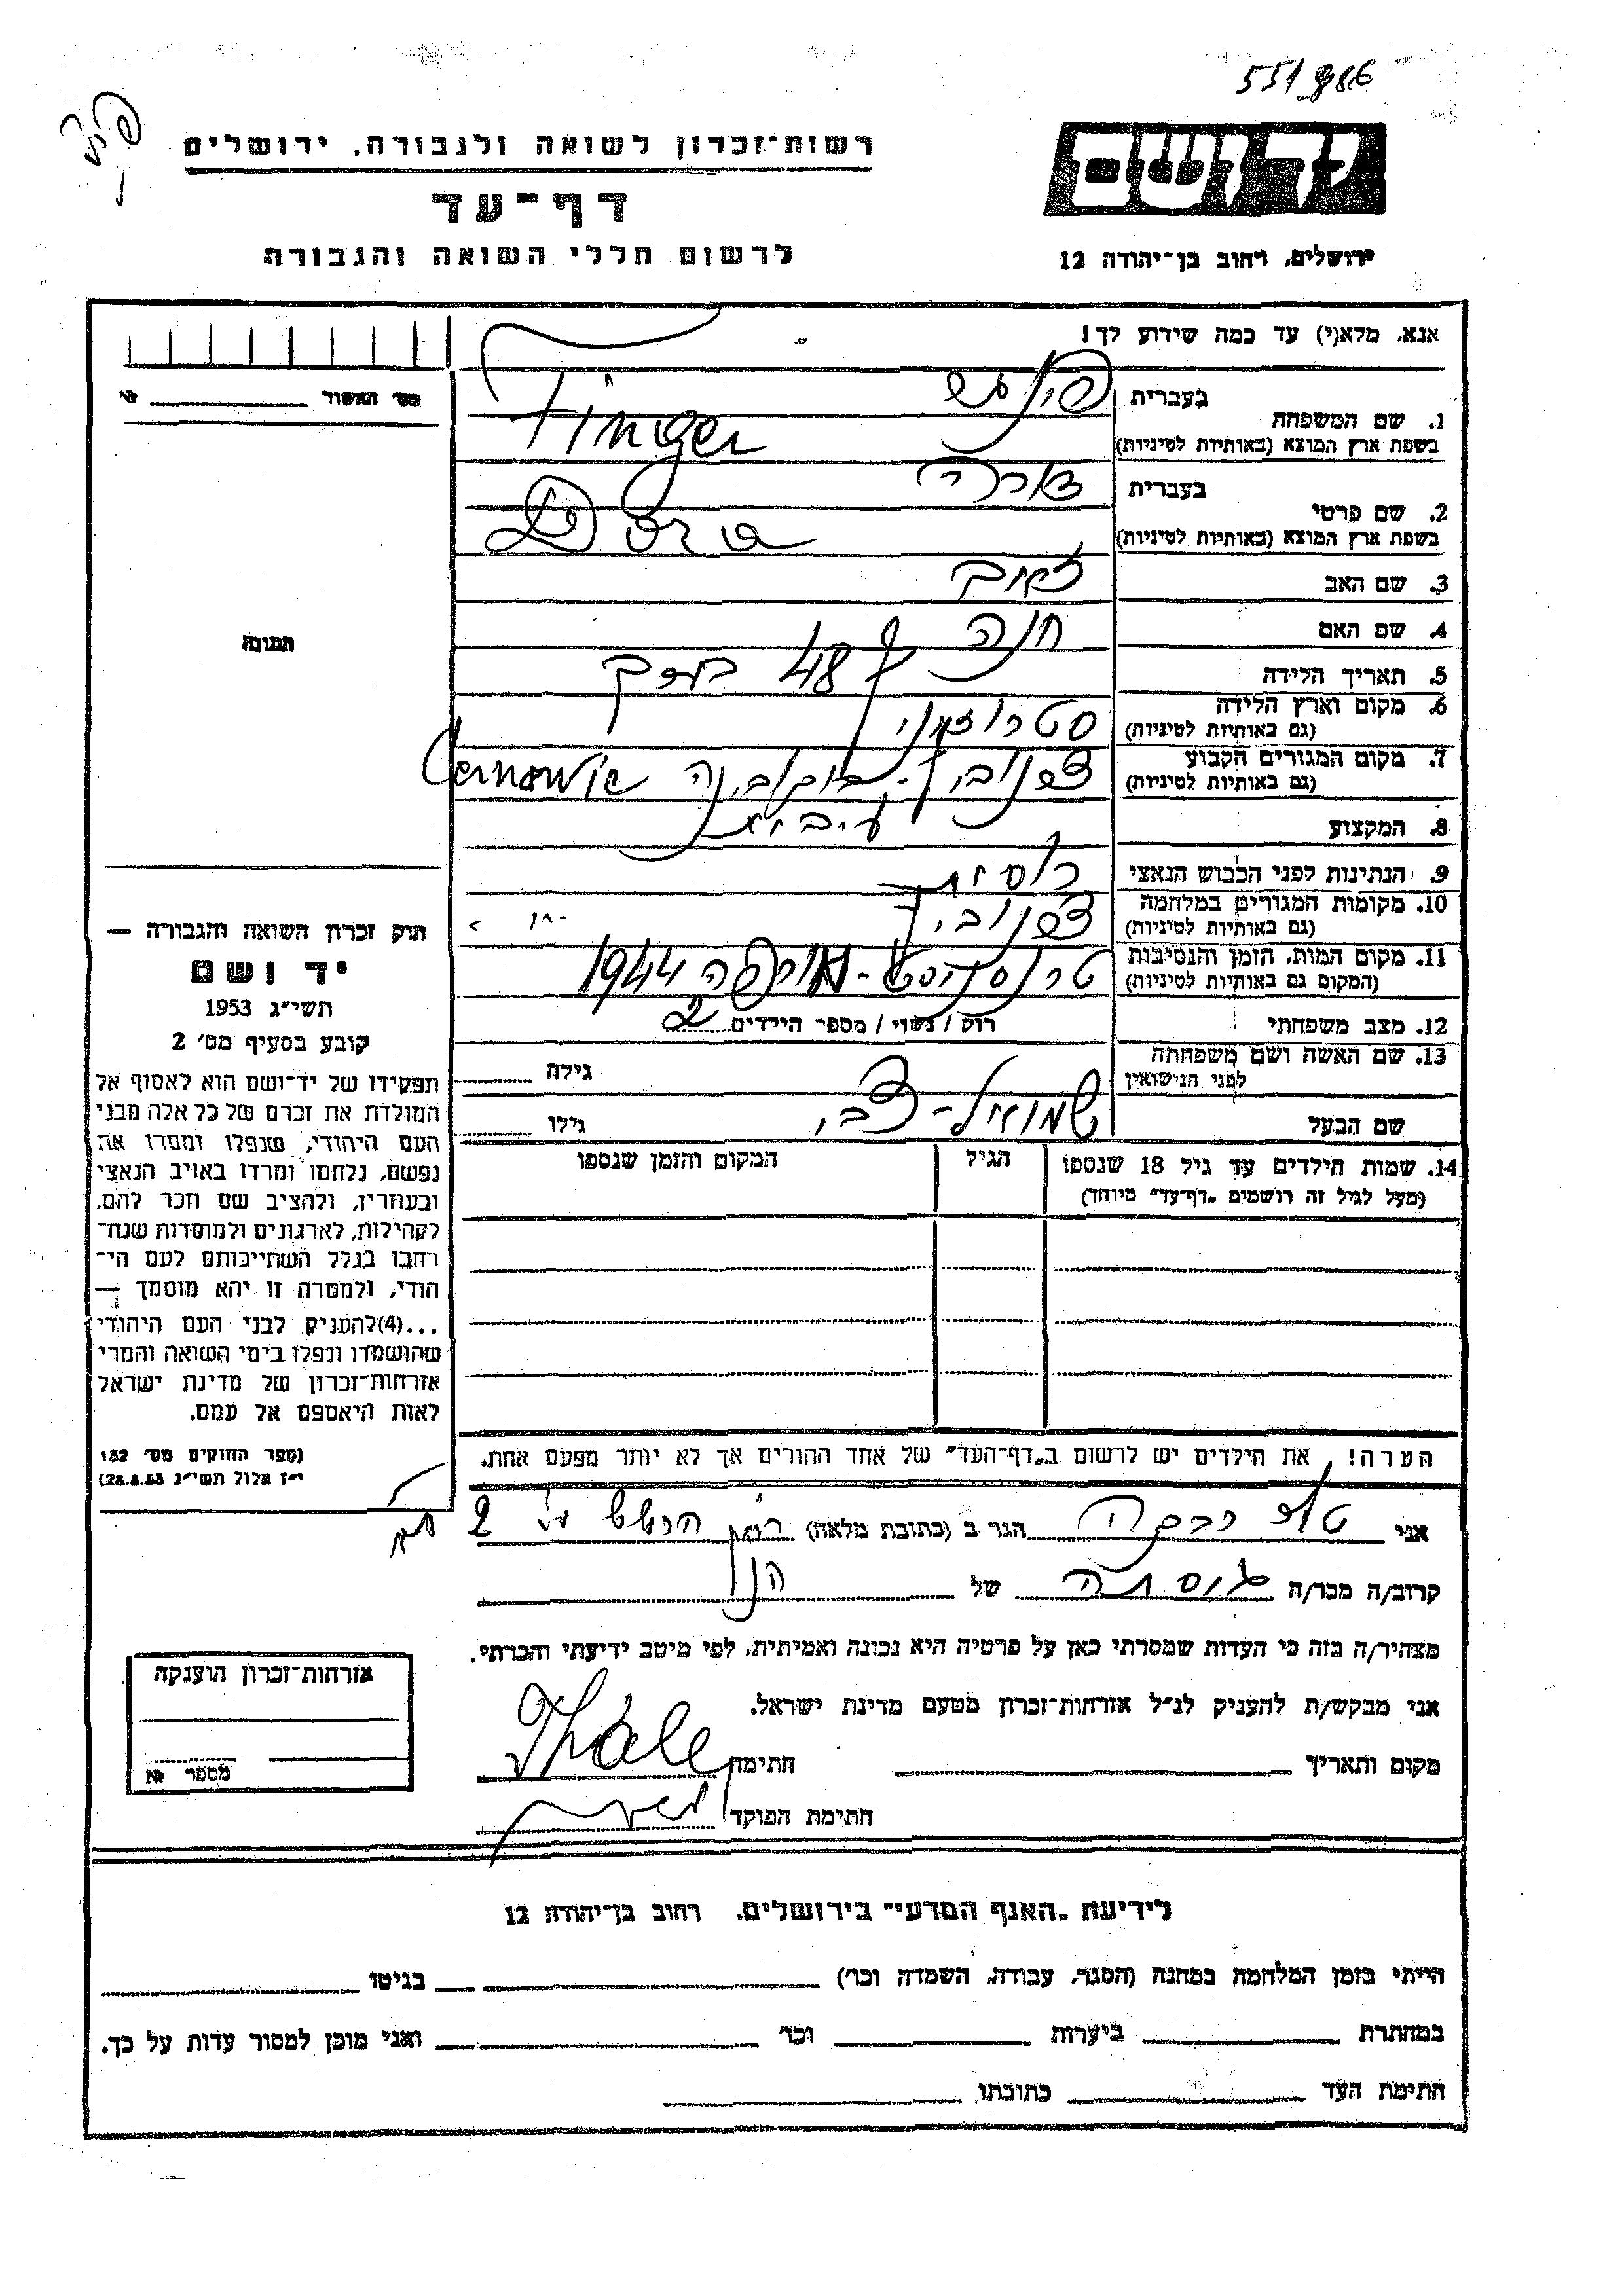 551986
רשות־זכרון לשואה ולגבורה, ירושלים
דף־עד
לרשום חללי השואה והגבורה
יד ושם
ירושלים, רחוב בן־יהודה 12
אנא, מלא(י) עד כמה שידוע לך!
מס׳ האשור №
1. שם המשפחה
בעברית
בשפת ארץ המוצא (באותיות לטיניות)
Finger
2. שם פרטי
בעברית דורה
בשפת ארץ המוצא (באותיות לטיניות)
Dora
3. שם האב זאב
4. שם האם חנה
5. תאריך הלידה 48
6. מקום וארץ הלידה
(גם באותיות לטיניות)
7. מקום המגורים הקבוע
(גם באותיות לטיניות)
8. המקצוע
9. הנתינות לפני הכבוש הנאצי
10. מקומות המגורים במלחמה
(גם באותיות לטיניות)
11. מקום המות, הזמן והנסיבות
(המקום גם באותיות לטיניות)
1944
12. מצב משפחתי רוק / נשוי / מספר הילדים 2
13. שם האשה ושם משפחתה
לפני הנישואין
גילה
שם הבעל שמואל־צבי גילו
14. שמות הילדים עד גיל 18 שנספו
(מעל לגיל זה רושמים „דף־עד״ מיוחד)
הגיל
המקום והזמן שנספו
תמונה
חוק זכרון השואה והגבורה —
יד ושם
תשי״ג 1953
קובע בסעיף מס׳ 2
תפקידו של יד־ושם הוא לאסוף אל
המולדת את זכרם של כל אלה מבני
העם היהודי, שנפלו ומסרו את
נפשם, נלחמו ומרדו באויב הנאצי
ובעוזריו, ולהציב שם וזכר להם,
לקהילות, לארגונים ולמוסדות שנח־
רחבו בגלל השתייכותם לעם הי־
הודי, ולמטרה זו יהא מוסמך —
...(4)להעניק לבני העם היהודי
שהושמדו ונפלו בימי השואה והמרי
אזרחות־זכרון של מדינת ישראל
לאות היאספם אל עמם.
(ספר החוקים מס׳ 132
י״ז אלול תשי״ג 28.8.53)
הערה! את הילדים יש לרשום ב„דף־העד״ של אחד ההורים אך לא יותר מפעם אחת.
אני רבקה הגר ב (כתובת מלאה) 2
קרוב/ה מכר/ה גיסתה של
מצהיר/ה בזה כי העדות שמסרתי כאן על פרטיה היא נכונה ואמיתית, לפי מיטב ידיעתי והכרתי.
אני מבקש/ת להעניק לנ״ל אזרחות־זכרון מטעם מדינת ישראל.
מקום ותאריך חתימה
חתימת הפוקד
אזרחות־זכרון הוענקה
מספר №
לידיעת „האגף המדעי״ בירושלים, רחוב בן־יהודה 12
הייתי בזמן המלחמה במחנה (הסגר, עבודה, השמדה וכו׳) בגיטו
במחתרת ביערות וכו׳ ואני מוכן למסור עדות על כך.
חתימת העד כתובתו